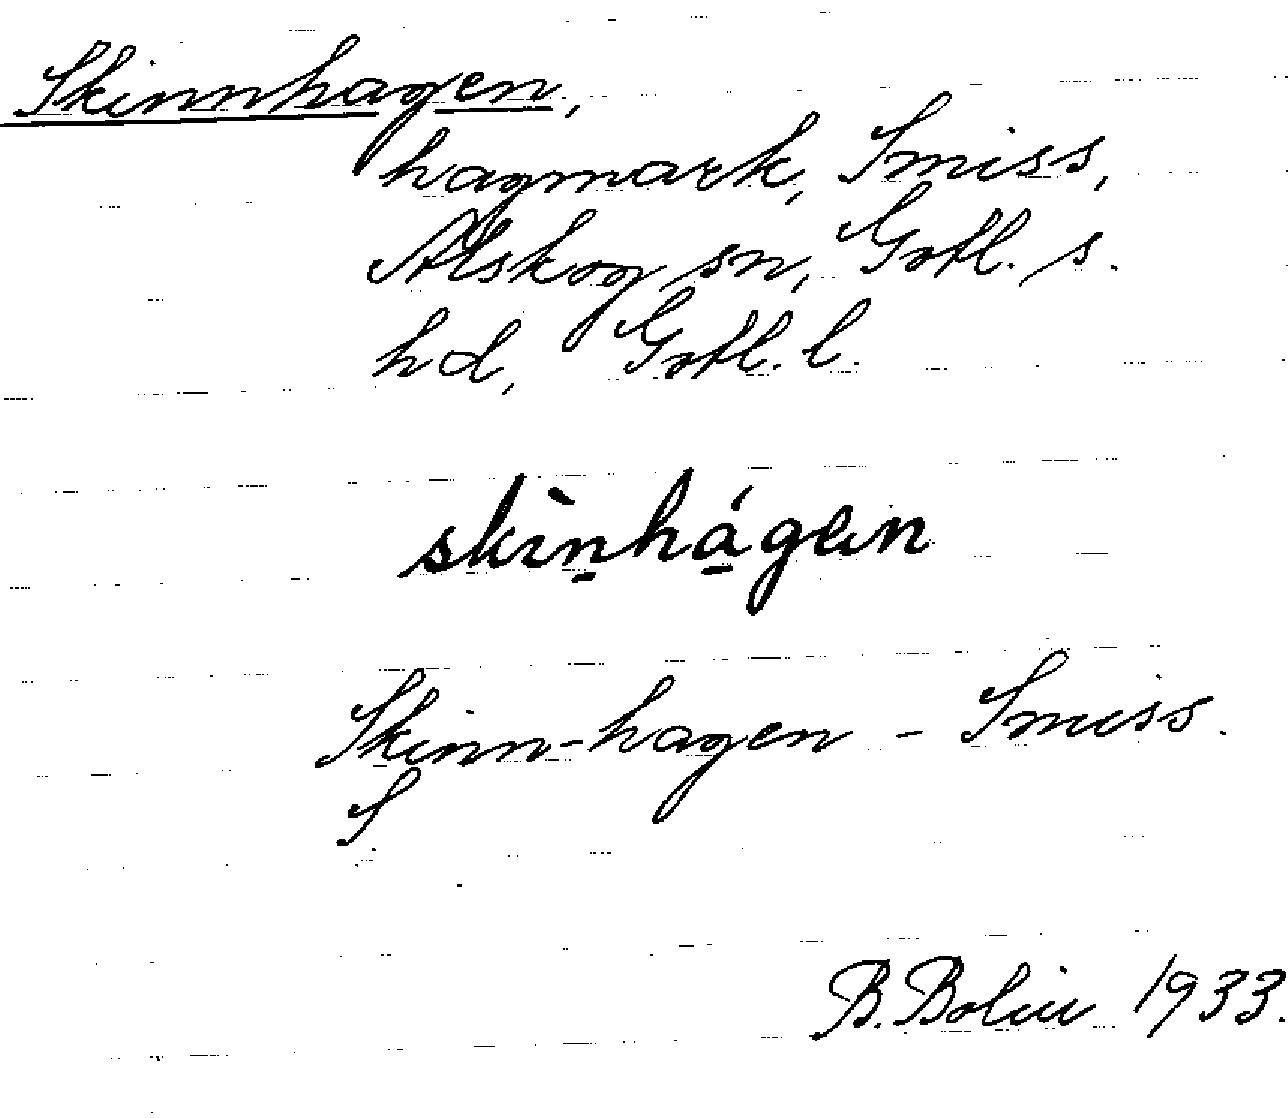 Skinnhagen,
hagmark, Smiss,
Alskog sn, Gotl. s.
hd, Gotl. l.
skìn̠há̠gæn
Skinn-hagen - Smiss.
S
B. Bolin 1933.